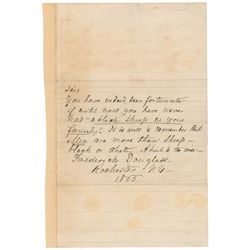 Sir:
You have indeed been fortunate
if until now you have never
had "a black sheep in your
family". It is well to remember that
Men are more than sheep -
black or white.
Frederick Douglass
Rochester N.Y.
1866.